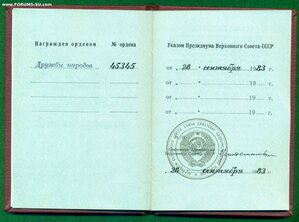 © www.FORUMS-SU.com
Награжден орденом № ордена
Дружбы народов 45345
Указом Президиума Верховного Совета СССР
от „28 “ сентября 1983
от „ “ 19
от „ “ 19
от „ “ 19
Верховного Совета СССР
„28 “ сентября 1983